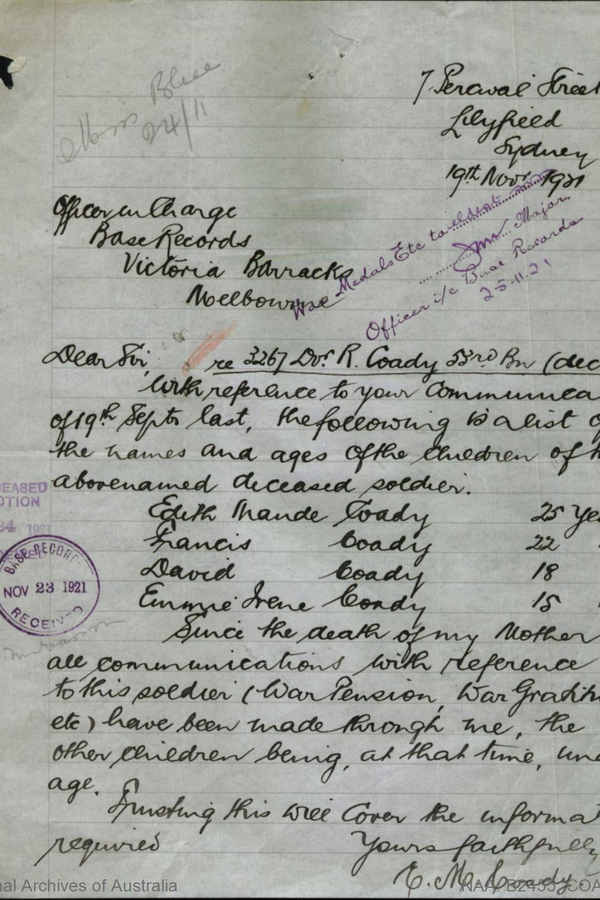 Blue
24/11
7 Percival Street
Lilyfield
Sydney
19th Novr 1921
Officer in Charge
Base Records
Victoria Barracks
Melbourne
Medals Etc to eldest
Major
Officer i/c Base Records
25.11.21
Dear Sir,
re 3267 Dvr R. Coady 53rd Bn (dec
With reference to your Communica
of 19th Septr last, the following is a list o
the names and ages of the children of th
abovenamed deceased soldier.
Edith Maude Coady 25 Ye
Francis Coady 22
David Coady 18
Emmie Irene Coady 15
EASED
CTION
1921
BASE RECORDS
NOV 23 1921
RECEIVED
Since the death of my Mother
all communications with reference
to this soldier (War Pension, War Gratui
etc) have been made through me, the
other children being, at that time, und
age.
Trusting this will Cover the informat
required
Yours faithfully
E. M. Coady.
nal Archives of Australia
NAA: B2455, COA